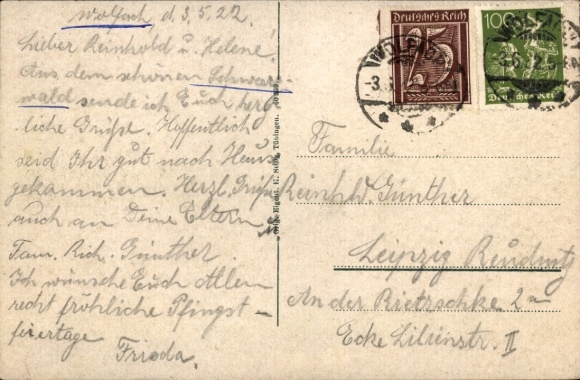 Wolfach, d. 3.5.22.
Lieber Reinhold u. Helene!
Aus dem schönen Schwarz-
wald sende ich Euch herz-
liche Grüße. Hoffentlich
seid Ihr gut nach Haus
gekommen. Herzl. Grüße
auch an Deine Eltern
Fam. Rich. Günther.
Ich wünsche Euch allen
recht fröhliche Pfingst-
feiertage
Frieda.
Deutsches Reich
75
100
Deutsches Reich
WOLFACH
Familie
Reinhld. Günther
Leipzig Reudnitz
An der Rietzschke 2
Ecke Lilienstr. II